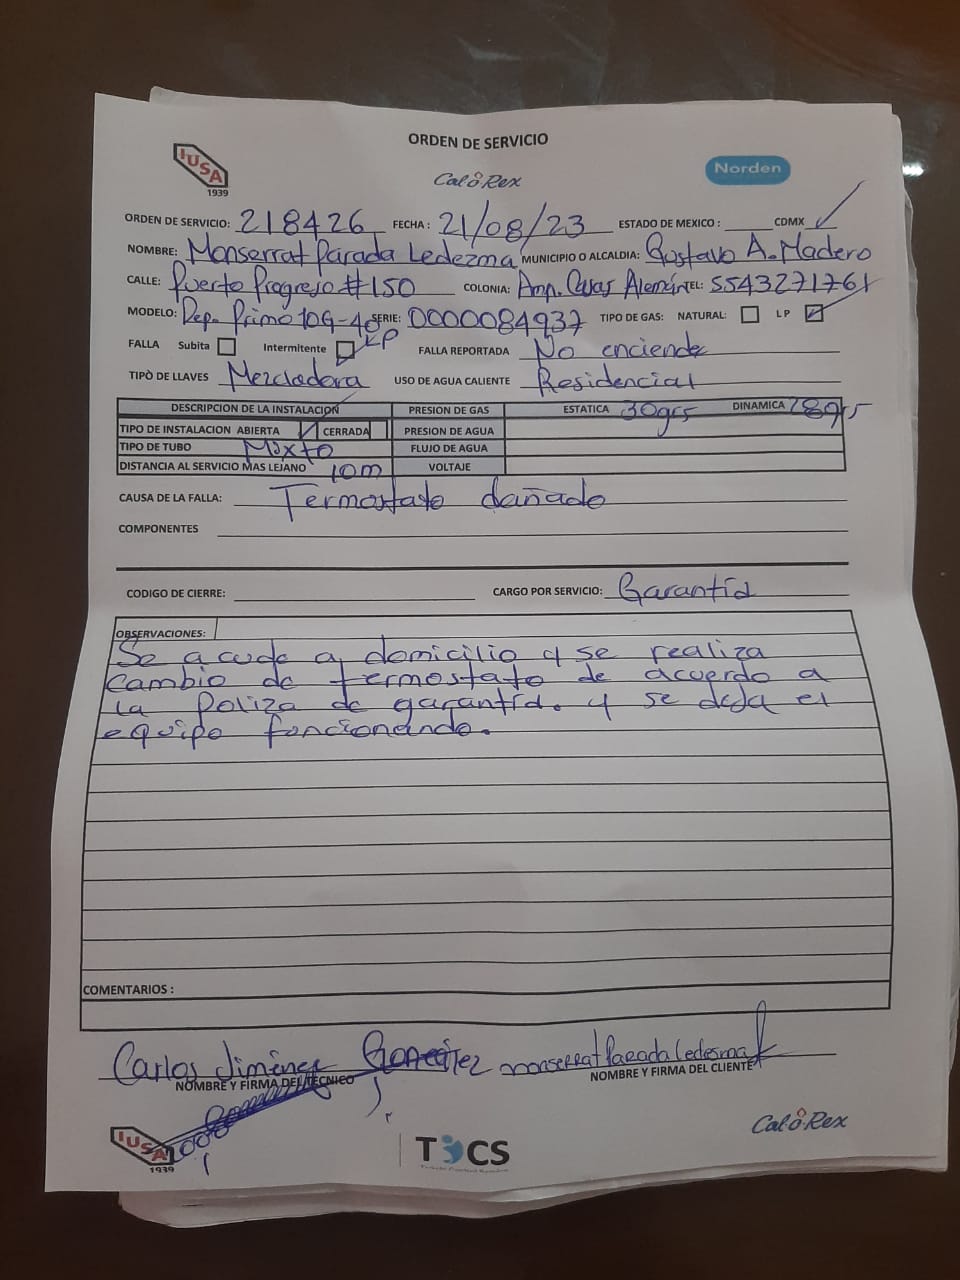 ORDEN DE SERVICIO
IUSA
1939
CaloRex
Norden
ORDEN DE SERVICIO: 218426 FECHA: 21/08/23 ESTADO DE MEXICO: CDMX ✓
NOMBRE: Monserrat Parada Ledezma MUNICIPIO O ALCALDIA: Gustavo A. Madero
CALLE: Puerto Progreso #150 COLONIA: Amp. Casas Alemán TEL: 5543271761
MODELO: Dep. Primo 10G-40 LP SERIE: 0000084937 TIPO DE GAS: NATURAL: LP
FALLA Subita Intermitente FALLA REPORTADA No enciende
TIPO DE LLAVES Mezcladora USO DE AGUA CALIENTE Residencial
DESCRIPCION DE LA INSTALACION PRESION DE GAS ESTATICA 30grs DINAMICA 28grs
TIPO DE INSTALACION ABIERTA CERRADA PRESION DE AGUA
TIPO DE TUBO Mixto FLUJO DE AGUA
DISTANCIA AL SERVICIO MAS LEJANO 10m VOLTAJE
CAUSA DE LA FALLA: Termostato dañado
COMPONENTES
CODIGO DE CIERRE: CARGO POR SERVICIO: Garantía
OBSERVACIONES:
Se acude a domicilio y se realiza
cambio de termostato de acuerdo a
la Poliza de garantía. y se deja el
equipo funcionando.
COMENTARIOS :
Carlos Jiménez González monserrat Parada Ledesma
NOMBRE Y FIRMA DEL TECNICO NOMBRE Y FIRMA DEL CLIENTE
IUSA
1939
TOCS
CaloRex